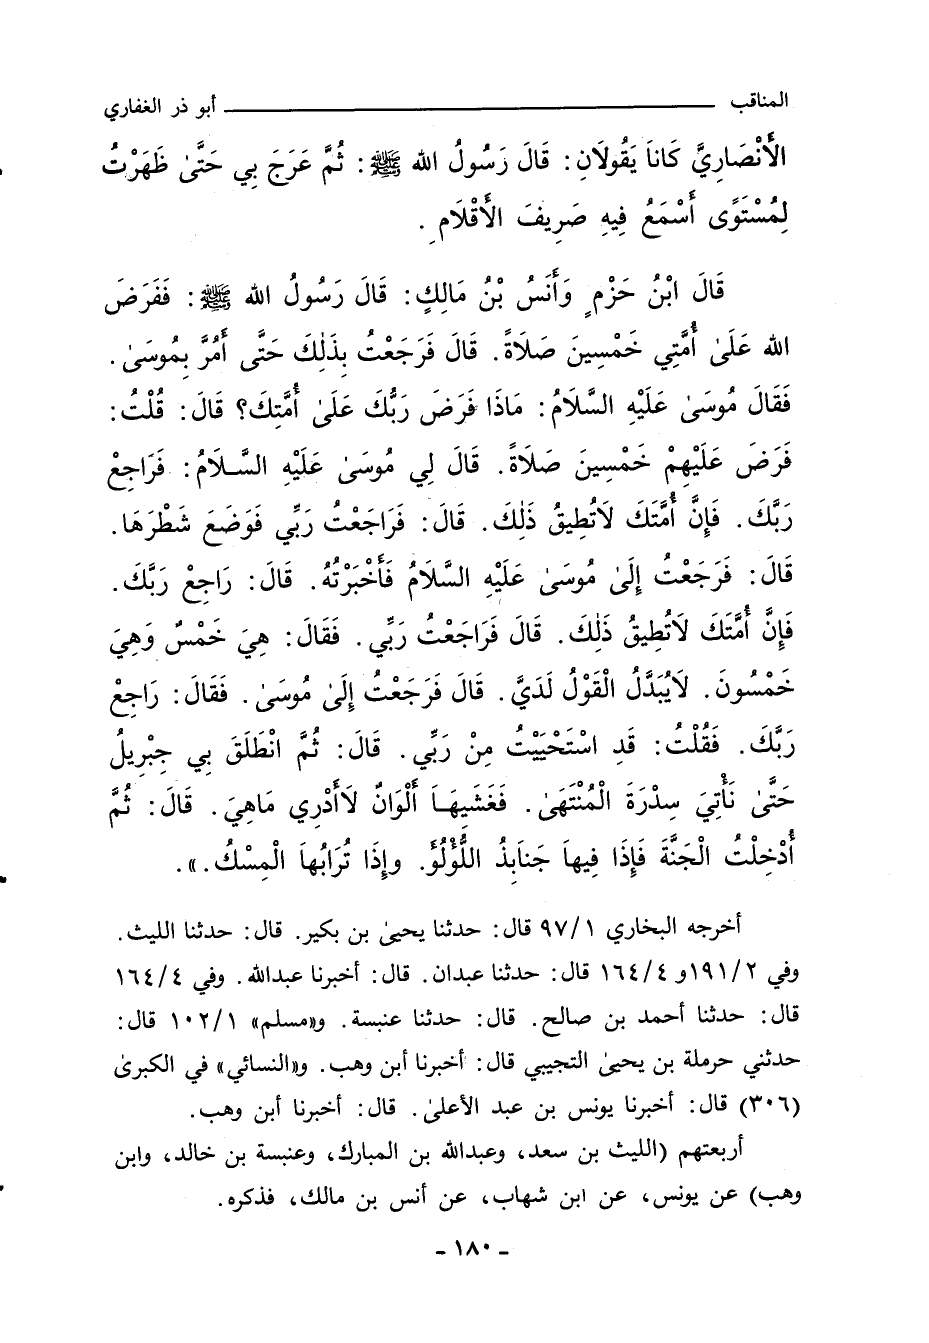 المناقب ـــــــــــــــــ أبو ذر الغفاري
الأَنْصَارِيَّ كَانَا يَقُولَانِ: قَالَ رَسُولُ الله ﷺ: ثُمَّ عَرَجَ بِي حَتَّىٰ ظَهَرْتُ
لِمُسْتَوًى أَسْمَعُ فِيهِ صَرِيفَ الأَقْلَامِ.
قَالَ ابْنُ حَزْمٍ وَأَنَسُ بْنُ مَالِكٍ: قَالَ رَسُولُ الله ﷺ: فَفَرَضَ
الله عَلَىٰ أُمَّتِي خَمْسِينَ صَلَاةً. قَالَ فَرَجَعْتُ بِذَٰلِكَ حَتَّى أَمُرَّ بِمُوسَىٰ.
فَقَالَ مُوسَىٰ عَلَيْهِ السَّلَامُ: مَاذَا فَرَضَ رَبُّكَ عَلَىٰ أُمَّتِكَ؟ قَالَ: قُلْتُ:
فَرَضَ عَلَيْهِمْ خَمْسِينَ صَلَاةً. قَالَ لِي مُوسَىٰ عَلَيْهِ السَّلَامُ: فَرَاجِعْ
رَبَّكَ. فَإِنَّ أُمَّتَكَ لَاتُطِيقُ ذَٰلِكَ. قَالَ: فَرَاجَعْتُ رَبِّي فَوَضَعَ شَطْرَهَا.
قَالَ: فَرَجَعْتُ إِلَىٰ مُوسَىٰ عَلَيْهِ السَّلَامُ فَأَخْبَرْتُهُ. قَالَ: رَاجِعْ رَبَّكَ.
فَإِنَّ أُمَّتَكَ لَاتُطِيقُ ذَٰلِكَ. قَالَ فَرَاجَعْتُ رَبِّي. فَقَالَ: هِيَ خَمْسٌ وَهِيَ
خَمْسُونَ. لَايُبَدَّلُ الْقَوْلُ لَدَيَّ. قَالَ فَرَجَعْتُ إِلَىٰ مُوسَىٰ. فَقَالَ: رَاجِعْ
رَبَّكَ. فَقُلْتُ: قَدِ اسْتَحْيَيْتُ مِنْ رَبِّي. قَالَ: ثُمَّ انْطَلَقَ بِي جِبْرِيلُ
حَتَّىٰ نَأْتِيَ سِدْرَةَ الْمُنْتَهَىٰ. فَغَشِيَهَا أَلْوَانٌ لَاأَدْرِي مَاهِيَ. قَالَ: ثُمَّ
أُدْخِلْتُ الْجَنَّةَ فَإِذَا فِيهَا جَنَابِذُ اللُّؤْلُؤَ. وإِذَا تُرَابُهَا الْمِسْكُ.».
أخرجه البخاري ٩٧/١ قال: حدثنا يحيىٰ بن بكير. قال: حدثنا الليث.
وفي ١٩١/٢و ١٦٤/٤ قال: حدثنا عبدان. قال: أخبرنا عبدالله. وفي ١٦٤/٤
قال: حدثنا أحمد بن صالح. قال: حدثنا عنبسة. و«مسلم» ١٠٢/١ قال:
حدثني حرملة بن يحيىٰ التجيبي قال: أخبرنا أبن وهب. و«النسائي» في الكبرىٰ
(٣٠٦) قال: أخبرنا يونس بن عبد الأعلىٰ. قال: أخبرنا أبن وهب.
أربعتهم (الليث بن سعد، وعبدالله بن المبارك، وعنبسة بن خالد، وابن
وهب) عن يونس، عن ابن شهاب، عن أنس بن مالك، فذكره.
ـ ١٨٠ ـ